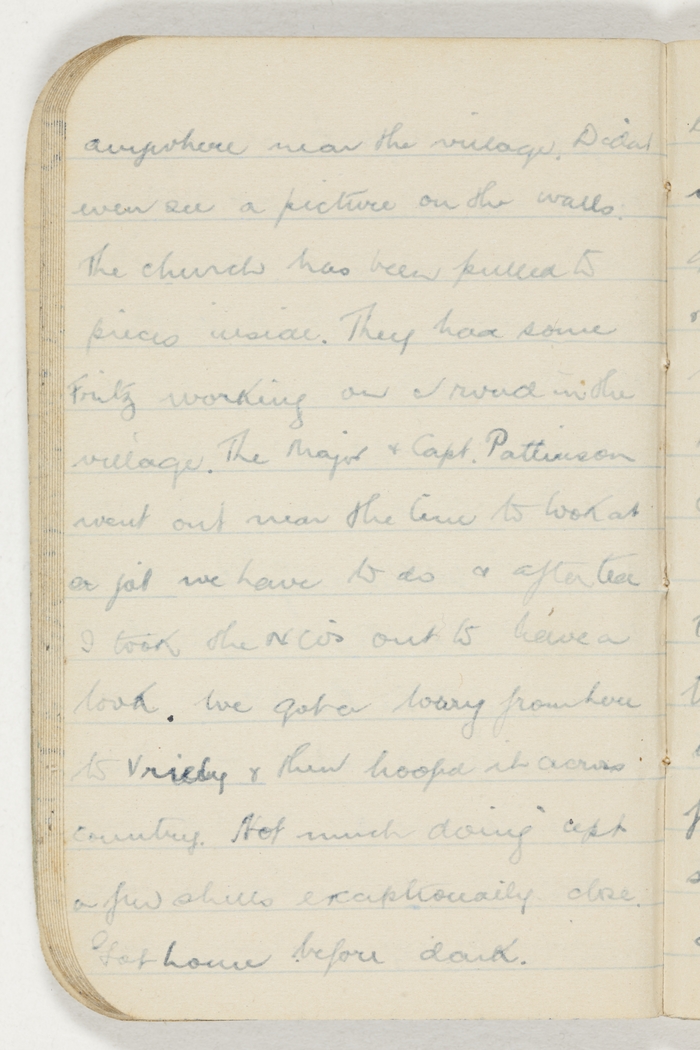 anywhere near the village. Didnt
even see a picture on the walls.
The church has been pulled to
pieces inside. They had some
Fritz working on a road in the
village. The Major & Capt. Pattinson
went out near the line to look at
a job we have to do & after tea
I took the NCOs out to have a
look. We got a lorry from here
to & then hoofed it across
country. Not much doing cept
a few shells exceptionally close.
Got home before dark.